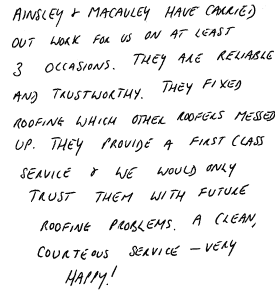 AINSLEY & MACAULEY HAVE CARRIED
OUT WORK FOR US ON AT LEAST
3 OCCASIONS. THEY ARE RELIABLE
AND TRUSTWORTHY. THEY FIXED
ROOFING WHICH OTHER ROOFERS MESSED
UP. THEY PROVIDE A FIRST CLASS
SERVICE & WE WOULD ONLY
TRUST THEM WITH FUTURE
ROOFING PROBLEMS. A CLEAN,
COURTEOUS SERVICE – VERY
HAPPY!